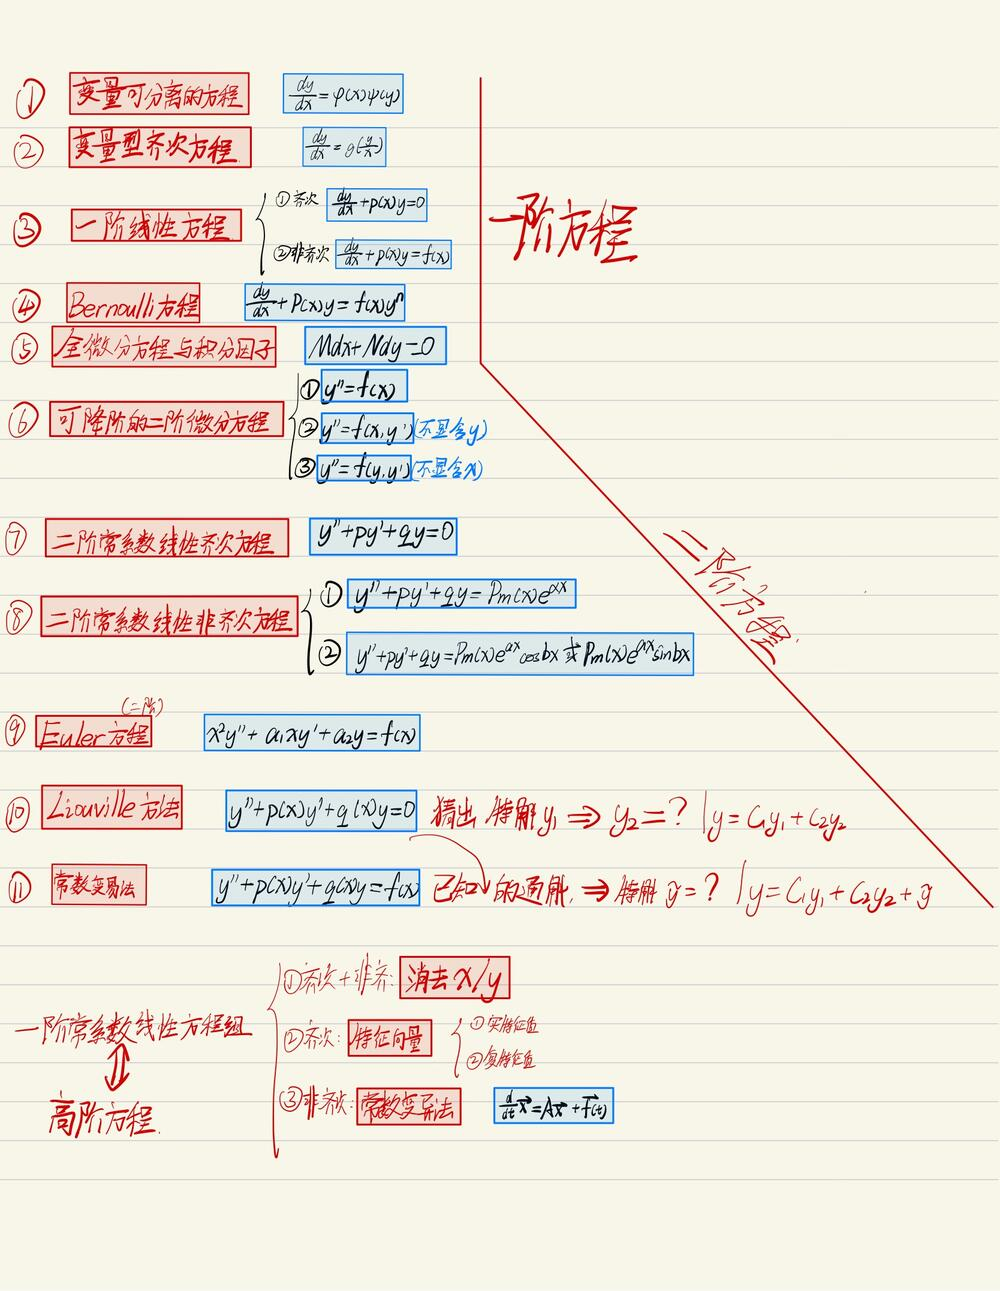 ① 变量可分离的方程 dy/dx = φ(x)ψ(y)
② 变量型齐次方程 dy/dx = g(y/x)
③ 一阶线性方程
①齐次 dy/dx + p(x)y = 0
②非齐次 dy/dx + p(x)y = f(x)
一阶方程
④ Bernoulli方程 dy/dx + P(x)y = f(x)yⁿ
⑤ 全微分方程与积分因子 Mdx+Ndy=0
⑥ 可降阶的二阶微分方程
① y''=f(x)
② y''=f(x,y') (不显含y)
③ y''=f(y,y') (不显含x)
⑦ 二阶常系数线性齐次方程 y''+py'+qy=0
二阶方程
⑧ 二阶常系数线性非齐次方程
① y''+py'+qy=Pm(x)e^αx
② y''+py'+qy=Pm(x)e^αx cosbx 或 Pm(x)e^αx sinbx
(二阶)
⑨ Euler方程 x²y''+a₁xy'+a₂y=f(x)
⑩ Liouville方法 y''+p(x)y'+q(x)y=0 猜出特解y₁ ⇒ y₂=? | y=C₁y₁+C₂y₂
⑪ 常数变易法 y''+p(x)y'+q(x)y=f(x) 已知 的通解 ⇒ 特解 ȳ=? | y=C₁y₁+C₂y₂+ȳ
①齐次+非齐: 消去x/y
一阶常系数线性方程组
②齐次: 特征向量
①实特征值
②复特征值
⇕
高阶方程
③非齐次: 常数变易法 d/dt x⃗=Ax⃗+f⃗(t)